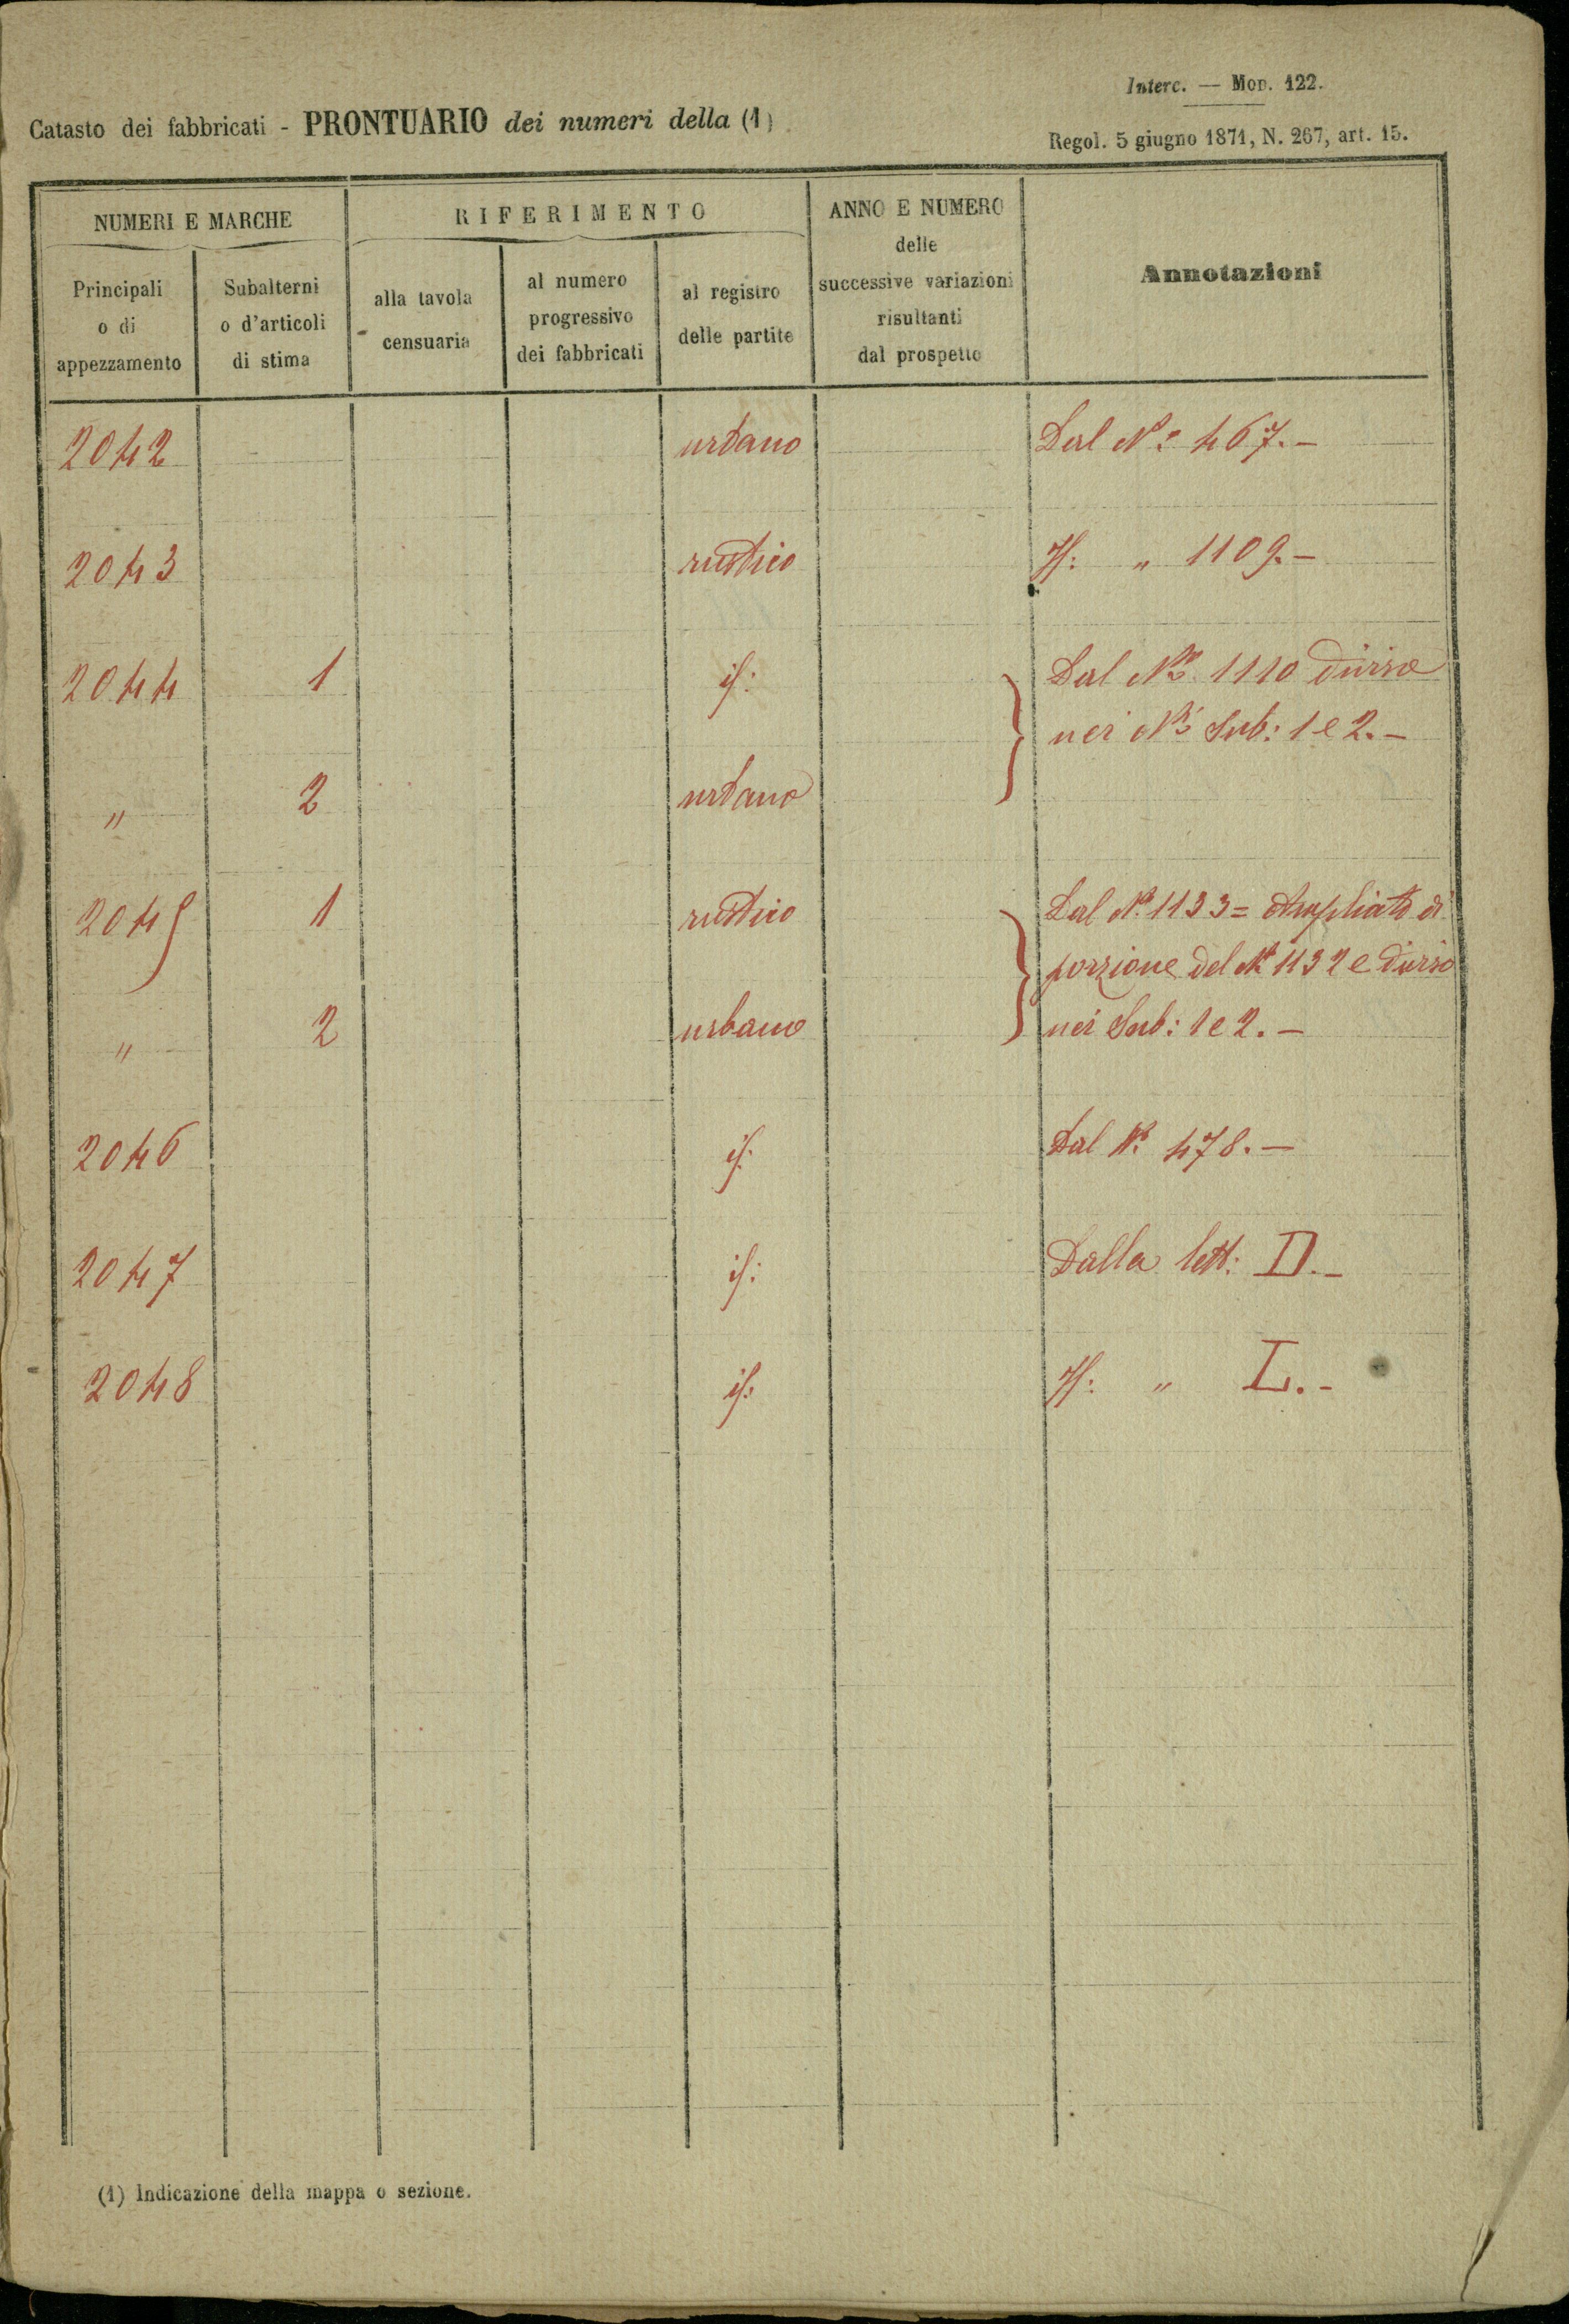 Interc. — Mod. 122.
Catasto dei fabbricati - PRONTUARIO dei numeri della (1)
Regol. 5 giugno 1871, N. 267, art. 15.
NUMERI E MARCHE
RIFERIMENTO
ANNO E NUMERO
delle
successive variazioni
risultanti
dal prospetto
Annotazioni
Principali
o di
appezzamento
Subalterni
o d'articoli
di stima
alla tavola
censuaria
al numero
progressivo
dei fabbricati
al registro
delle partite
2042 urbano Dal N.o 467.-
2043 rustico If: „ 1109.-
2044 1 if: Dal No. 1110 diviso
nei Ni Sub: 1 e 2.-
„ 2 urbano
2045 1 rustico Dal No. 1133 = Ampliato di
porzione del No 1132 e diviso
„ 2 urbano nei Sub: 1 e 2.-
2046 if: Dal No. 478.-
2047 if: Dalla lett: D.-
2048 if: If: „ L.-
(1) Indicazione della mappa o sezione.